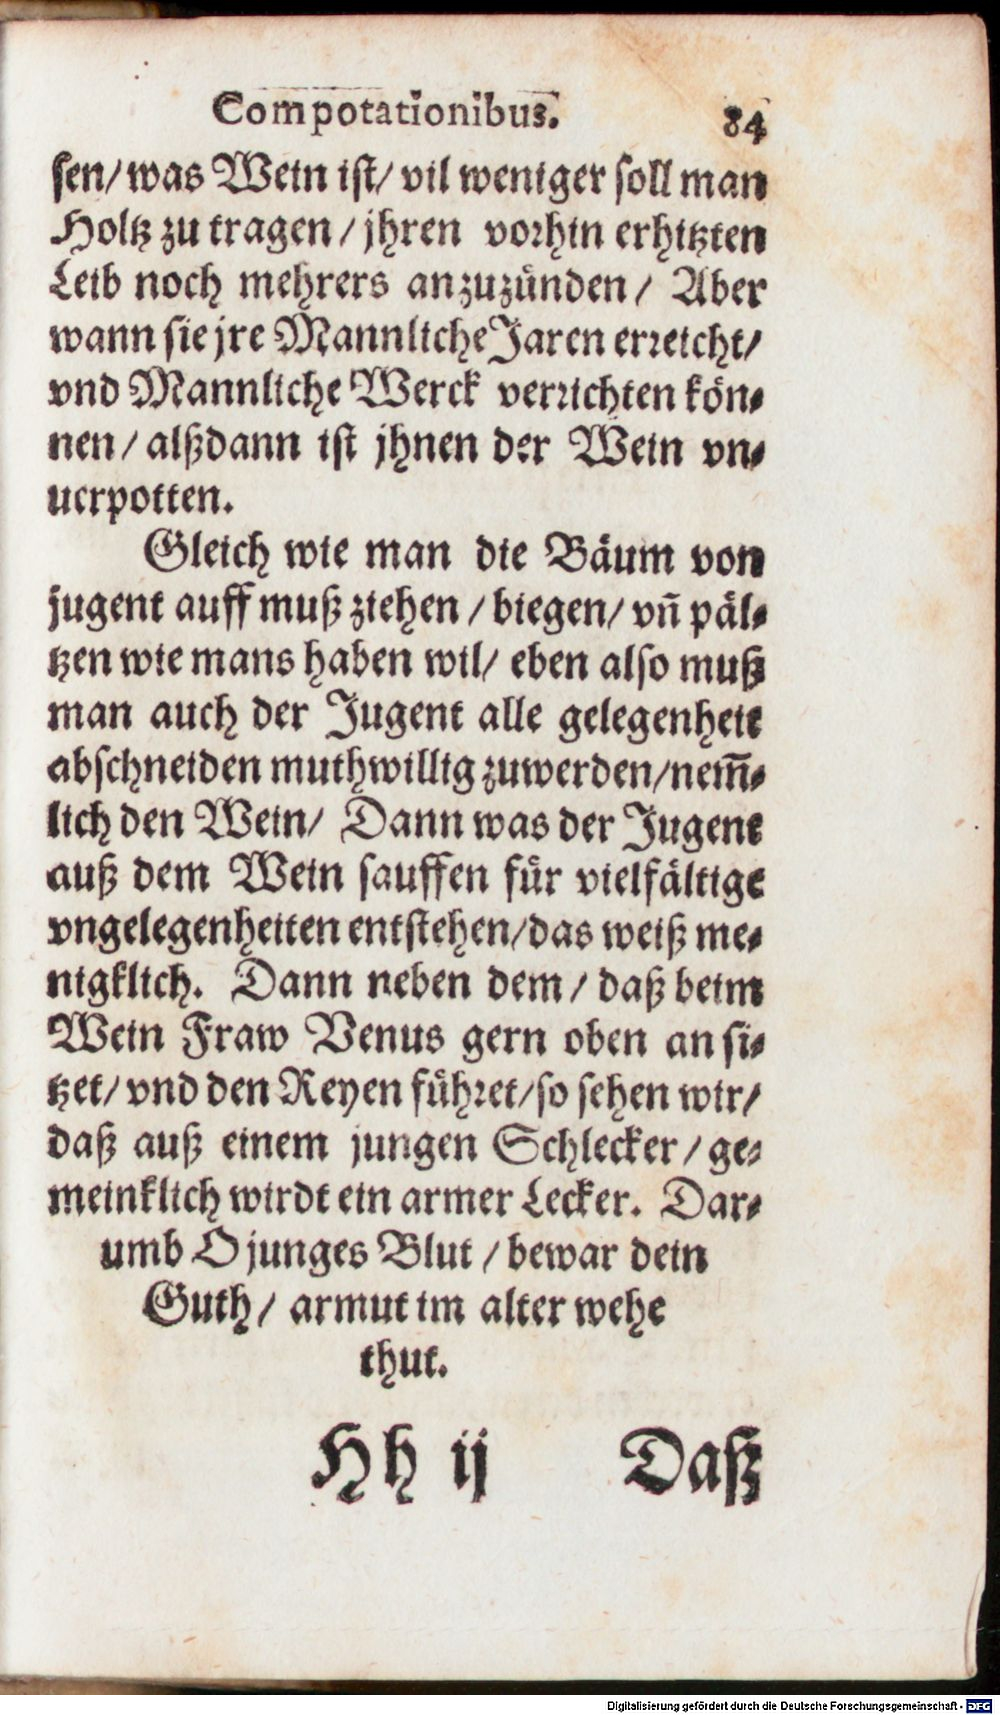 Compotationibus. 84
sen/ was Wein ist/ vil weniger soll man
Holtz zu tragen / jhren vorhin erhitzten
Leib noch mehrers anzuzünden / Aber
wann sie jre Mannliche Jaren erreicht/
vnd Mannliche Werck verrichten kön-
nen / alßdann ist jhnen der Wein vn-
uerpotten.
Gleich wie man die Bäum von
jugent auff muß ziehen / biegen/ vn̄ päl-
tzen wie mans haben wil/ eben also muß
man auch der Jugent alle gelegenheit
abschneiden muthwillig zuwerden/nem̄-
lich den Wein/ Dann was der Jugent
auß dem Wein sauffen für vielfältige
vngelegenheiten entstehen/das weiß me-
nigklich. Dann neben dem / daß beim
Wein Fraw Venus gern oben an si-
tzet/ vnd den Reyen führet/so sehen wir/
daß auß einem jungen Schlecker / ge-
meinklich wirdt ein armer Lecker. Dar-
umb O junges Blut / bewar dein
Guth/ armut im alter wehe
thut.
Hh ij Daß
Digitalisierung gefördert durch die Deutsche Forschungsgemeinschaft - DFG